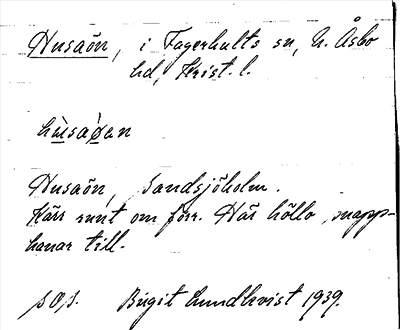 Husaön, i Fagerhults sn, N. Åsbo
hd, Krist. l.
hùsaø̀en
Husaön, Sandsjöholm.
Kärr runt om förr. Här höllo snapp-
hanar till.
s. 0, s. Birgit Lundkvist 1939.